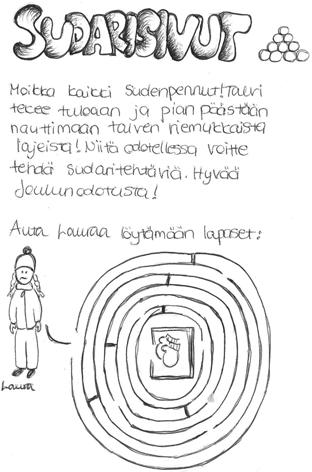 SUDARISIVUT
Moikka kaikki Sudenpennut! Talvi
tekee tuloaan ja pian päästään
nauttimaan talven riemukkaista
lajeista! Niitä odotellessa voitte
tehdä sudaritehtäviä. Hyvää
Joulunodotusta!
Auta Lauraa löytämään lapaset:
Laura